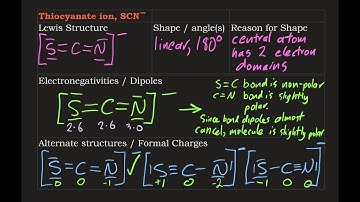 Thiocyanate ion, SCN⁻
Lewis Structure
Shape / angle(s)
Reason for Shape
[S=C=N]⁻
linear, 180°
central atom
has 2 electron
domains
Electronegativities / Dipoles
[S=C=N]⁻
2.6 2.6 3.0
S=C bond is non-polar
C=N bond is slightly
polar.
Since bond dipoles almost
cancel, molecule is slightly polar
Alternate structures / Formal Charges
[S=C=N]⁻ ✓ [|S≡C-N|]⁻ [|S-C≡N|]⁻
0 0 -1 +1 0 -2 -1 0 0